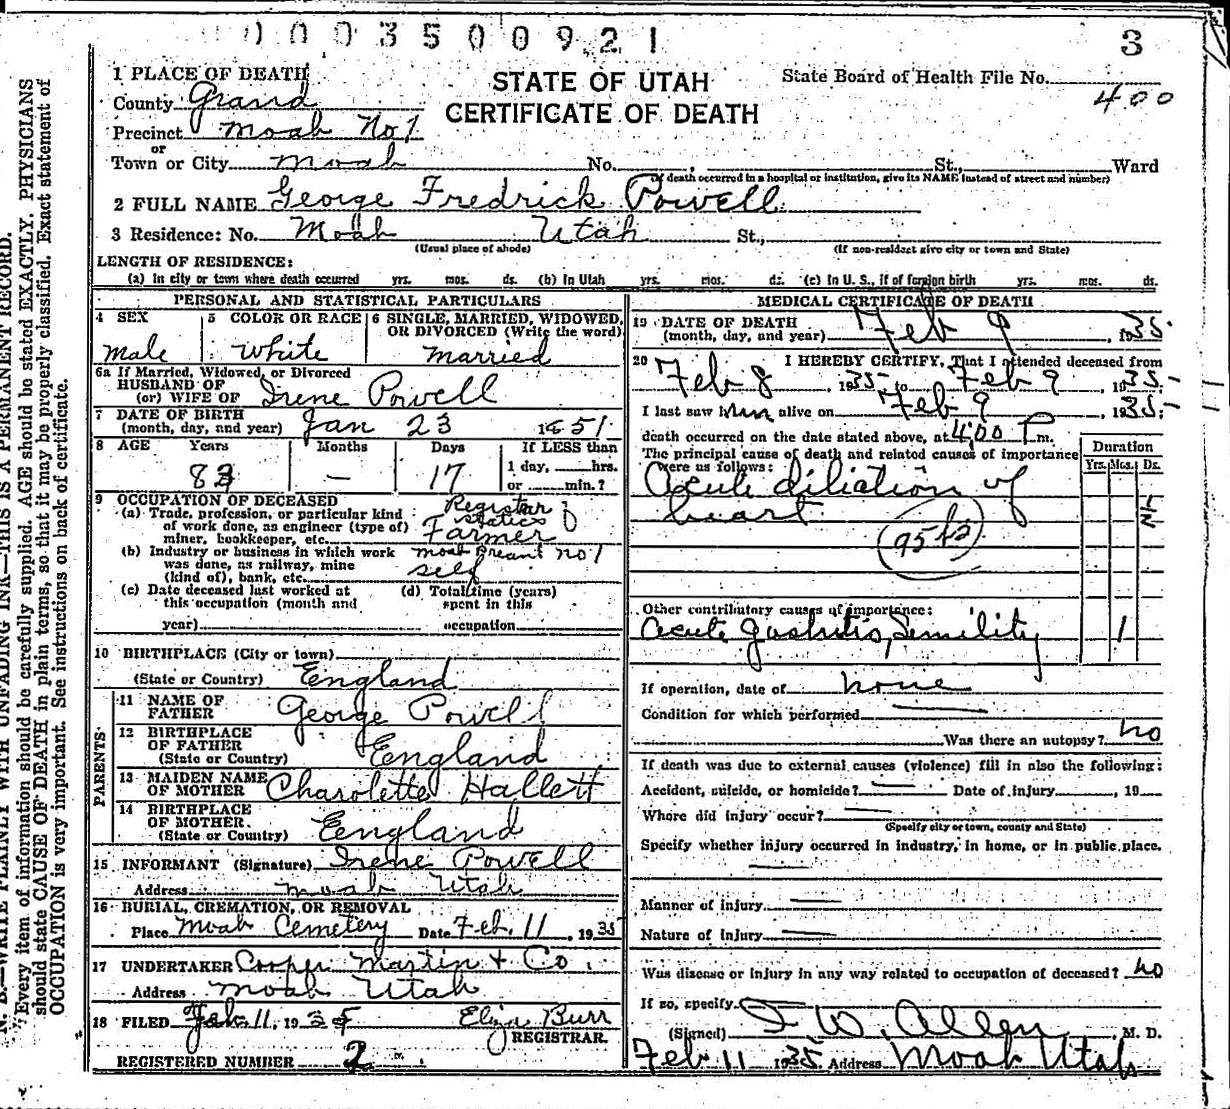 0003500921
3
STATE OF UTAH
CERTIFICATE OF DEATH
State Board of Health File No.
400
1 PLACE OF DEATH
County Grand
Precinct Moab No 1
or
Town or City Moab No. , St., Ward
(If death occurred in a hospital or institution, give its NAME instead of street and number)
2 FULL NAME George Fredrick Powell
3 Residence: No. Moab Utah St.,
(Usual place of abode) (If non-resident give city or town and State)
LENGTH OF RESIDENCE:
(a) In city or town where death occurred yrs. mos. ds. (b) In Utah yrs. mos. ds. (c) In U. S., if of foreign birth yrs. mos. ds.
PERSONAL AND STATISTICAL PARTICULARS
4 SEX 5 COLOR OR RACE 6 SINGLE, MARRIED, WIDOWED, OR DIVORCED (Write the word)
Male White Married
6a If Married, Widowed, or Divorced
HUSBAND OF
(or) WIFE OF Irene Powell
7 DATE OF BIRTH
(month, day, and year) Jan 23 1851
8 AGE Years Months Days If LESS than
1 day, hrs.
or min.?
83 — 17
9 OCCUPATION OF DECEASED
(a) Trade, profession, or particular kind
of work done, as engineer (type of)
miner, bookkeeper, etc.
Registar
Farmer
(b) Industry or business in which work
was done, as railway, mine
(kind of), bank, etc.
Moab No 1
self
(c) Date deceased last worked at
this occupation (month and
year)
(d) Total time (years)
spent in this
occupation
10 BIRTHPLACE (City or town)
(State or Country) England
PARENTS
11 NAME OF
FATHER George Powell
12 BIRTHPLACE
OF FATHER
(State or Country) England
13 MAIDEN NAME
OF MOTHER Charolette Hallett
14 BIRTHPLACE
OF MOTHER.
(State or Country) England
15 INFORMANT (Signature) Irene Powell
Address Moab Utah
16 BURIAL, CREMATION, OR REMOVAL
Place Moab Cemetery Date Feb. 11, 1935
17 UNDERTAKER Cooper Martin + Co.
Address Moab Utah
18 FILED Feb. 11, 1935 Eliza Burr
REGISTRAR.
REGISTERED NUMBER 2
MEDICAL CERTIFICATE OF DEATH
19 DATE OF DEATH
(month, day, and year) Feb 9, 1935
20 I HEREBY CERTIFY, That I attended deceased from
Feb 8, 1935 to Feb 9, 1935
I last saw him alive on Feb 9, 1935
death occurred on the date stated above, at 4:00 P m.
The principal cause of death and related causes of importance
were as follows:
Duration
Yrs. Mos. Ds.
Acute diliation of
heart
Other contributory causes of importance:
Acute gastritis, Semility 1
If operation, date of none
Condition for which performed
Was there an autopsy? no
If death was due to external causes (violence) fill in also the following:
Accident, suicide, or homicide? Date of injury , 19
Where did injury occur?
(Specify city or town, county and State)
Specify whether injury occurred in industry, in home, or in public place.
Manner of injury
Nature of injury
Was disease or injury in any way related to occupation of deceased? no
If so, specify
(Signed) I W. Allen M. D.
Feb 11 1935 Address Moab Utah
N. B.—WRITE PLAINLY WITH UNFADING INK—THIS IS A PERMANENT RECORD.
Every item of information should be carefully supplied. AGE should be stated EXACTLY. PHYSICIANS
should state CAUSE OF DEATH in plain terms, so that it may be properly classified. Exact statement of
OCCUPATION is very important. See instructions on back of certificate.